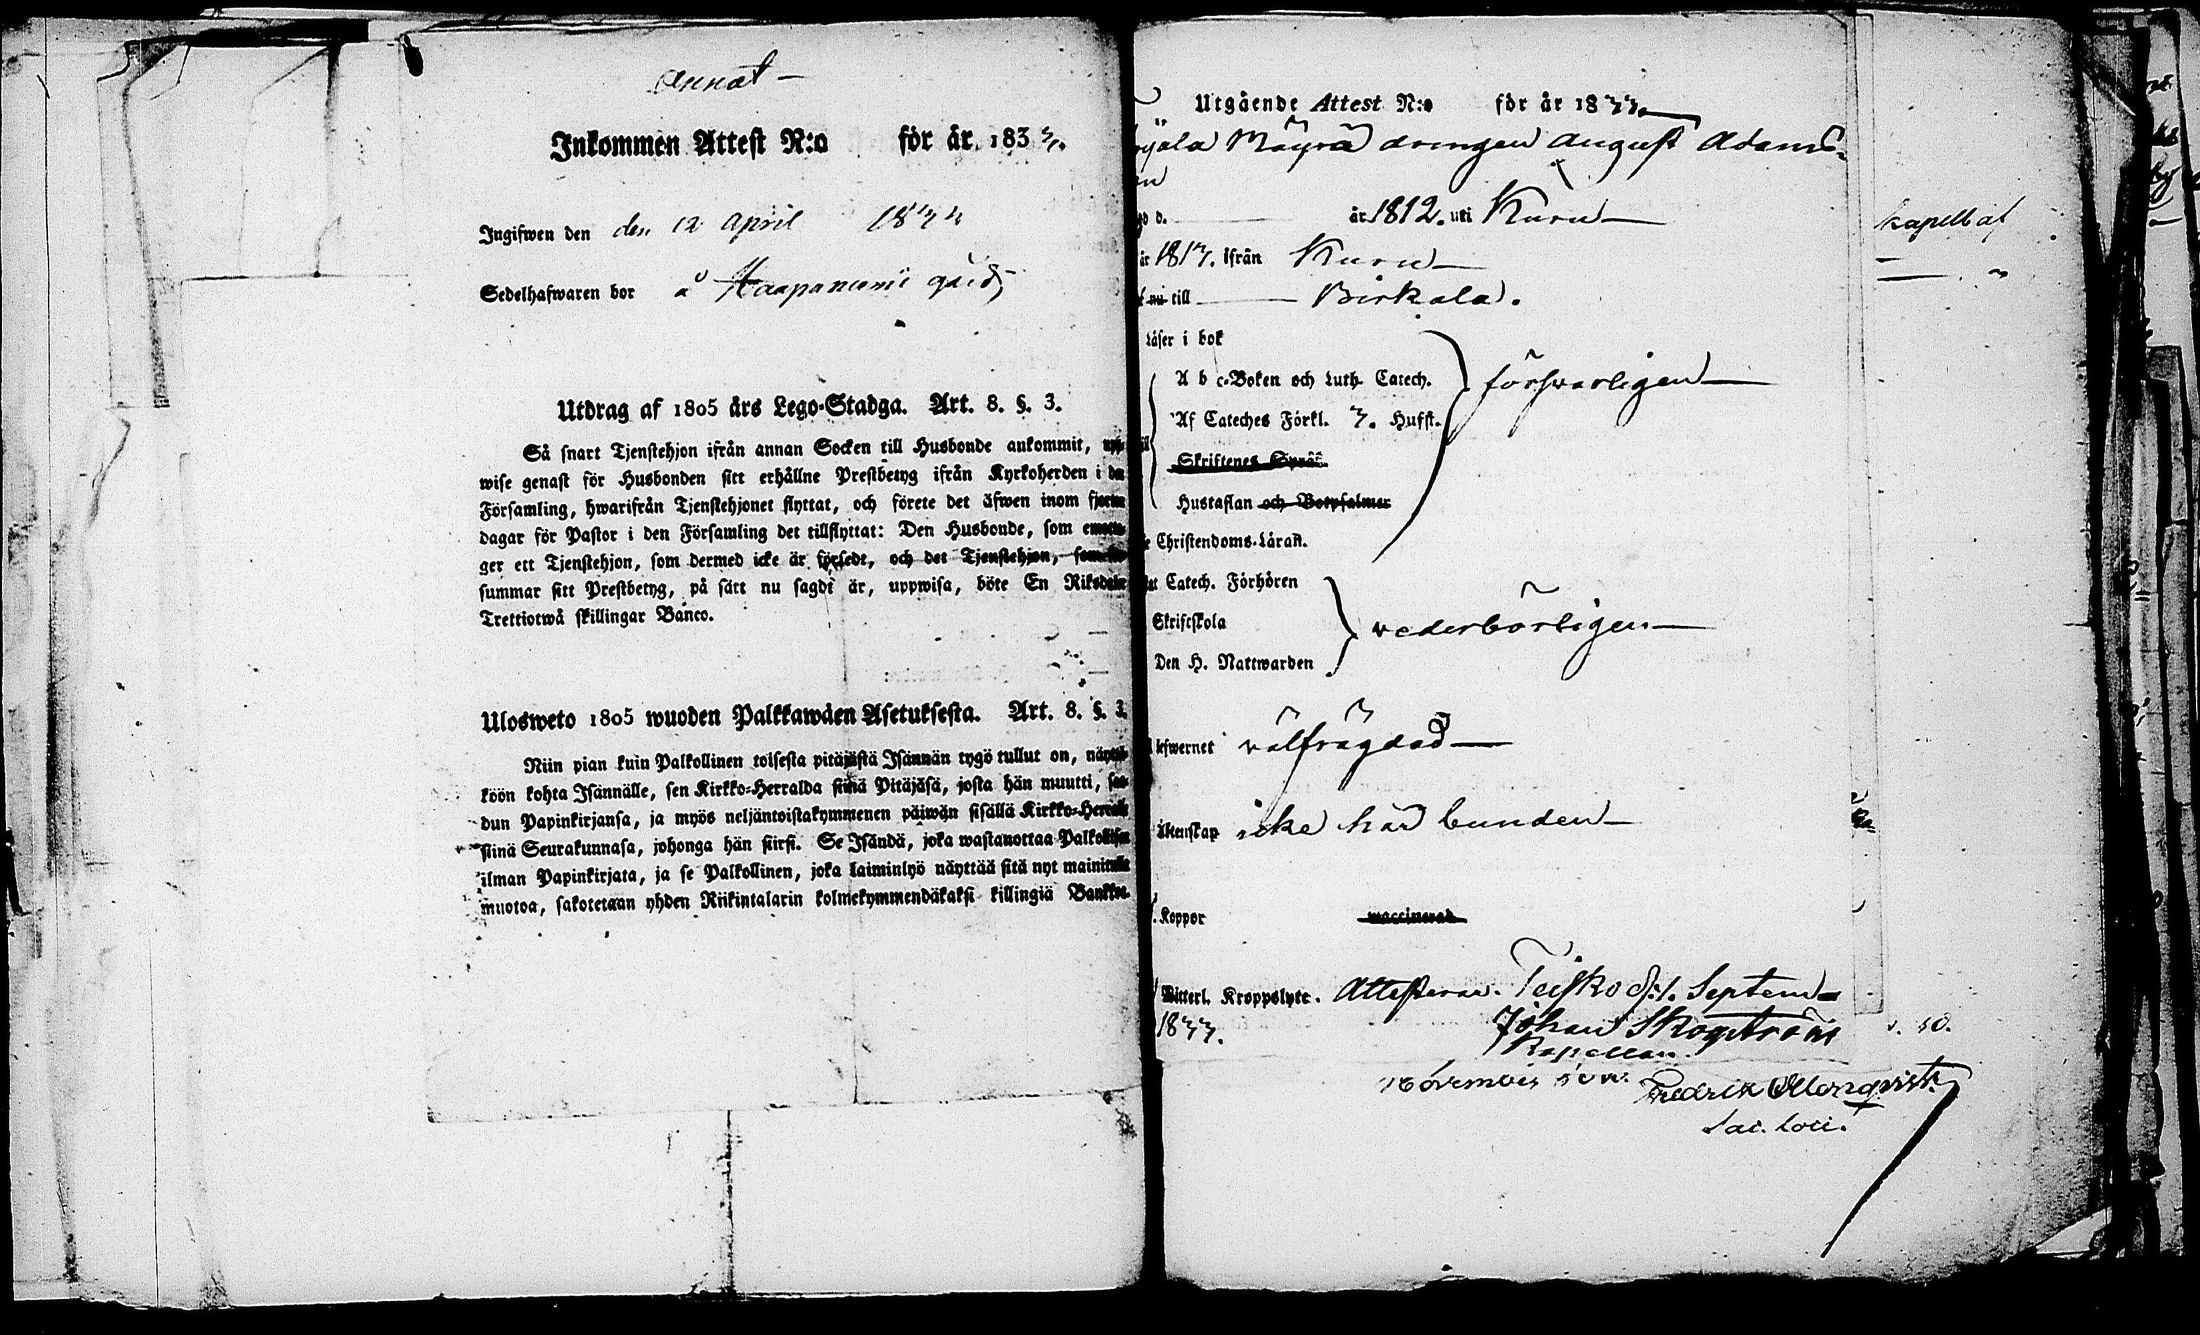 Annat –
Inkommen Attest N:o för år 183
Ingifwen den den 12 April 183
Sedelhafwaren bor å Haapaniemi gård,
Utdrag af 1805 års Lego-Stadga. Art. 8. §. 3.
Så snart Tjenstehjon ifrån annan Socken till Husbonde ankommit, upp-
wise genast för Husbonden sitt erhållne Prestbetyg ifrån Kyrkoherden i den
Församling, hwarifrån Tjenstehjonet flyttat, och förete det äfwen inom fjorton
dagar för Pastor i den Församling det tillflyttat: Den Husbonde, som emotta-
ger ett Tjenstehjon, som dermed icke är försedt, och det Tjenstehjon, som för-
summar sitt Prestbetyg, på sätt nu sagdt är, uppwisa, böte En Riksdaler
Trettiotwå skillingar Banco.
Ulosweto 1805 wuoden Palkkawäen Asetuksesta. Art. 8. §. 3.
Niin pian kuin Palkollinen toisesta pitäjästä Isännän tygö tullut on, näyttä-
köön kohta Isännälle, sen Kirkko-Herralda siinä Pitäjäsä, josta hän muutti, saa-
dun Papinkirjansa, ja myös neljäntoistakymmenen päiwän sisällä Kirkko-Herralle
siinä Seurakunnasa, johonga hän siirsi. Se Isändä, joka wastanottaa Palkollisen
ilman Papinkirjata, ja se Palkollinen, joka laiminlyö näyttää sitä nyt mainitulla
muotoa, sakotetaan yhden Riikintalarin kolmekymmendäkaksi killingiä Bankko.
Utgående Attest N:o för år 1833
Mäyrä drengen August Adams-
år 1812. uti Kuru
år 1813. ifrån Kuru
nu till Birkala.
Läser i bok
A b c-Boken och Luth. Catech. försvarligen
Af Cateches Förkl. 3. Hufst.
Skriftenes Språk
Hustaflan och Botpsalmer
Christendoms-Läran.
Catech. Förhören
Skriftskola vederbörligen
Den H. Nattwarden
lefwernet välfrägdad
Äktenskap icke här bunden
Koppor vaccinerad
Witterl. Kroppslyte. Attesterar. Teisko d. 1. Septem-
1833. Johan Skogström
Kapellan.
Fredrik
Sac. Loci.
kapell af